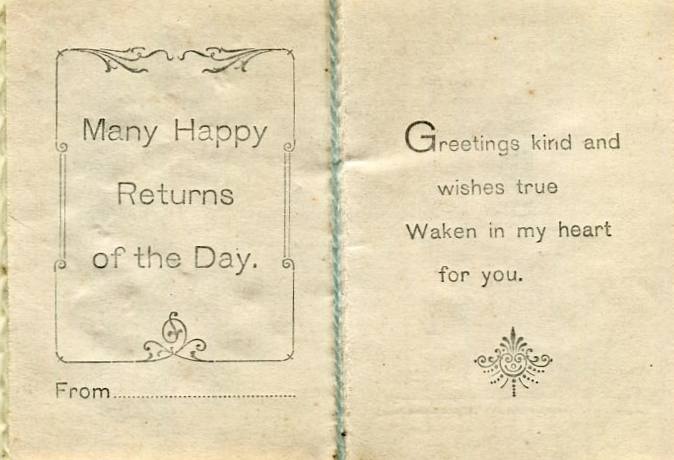 Many Happy
Returns
of the Day.
From
Greetings kind and
wishes true
Waken in my heart
for you.